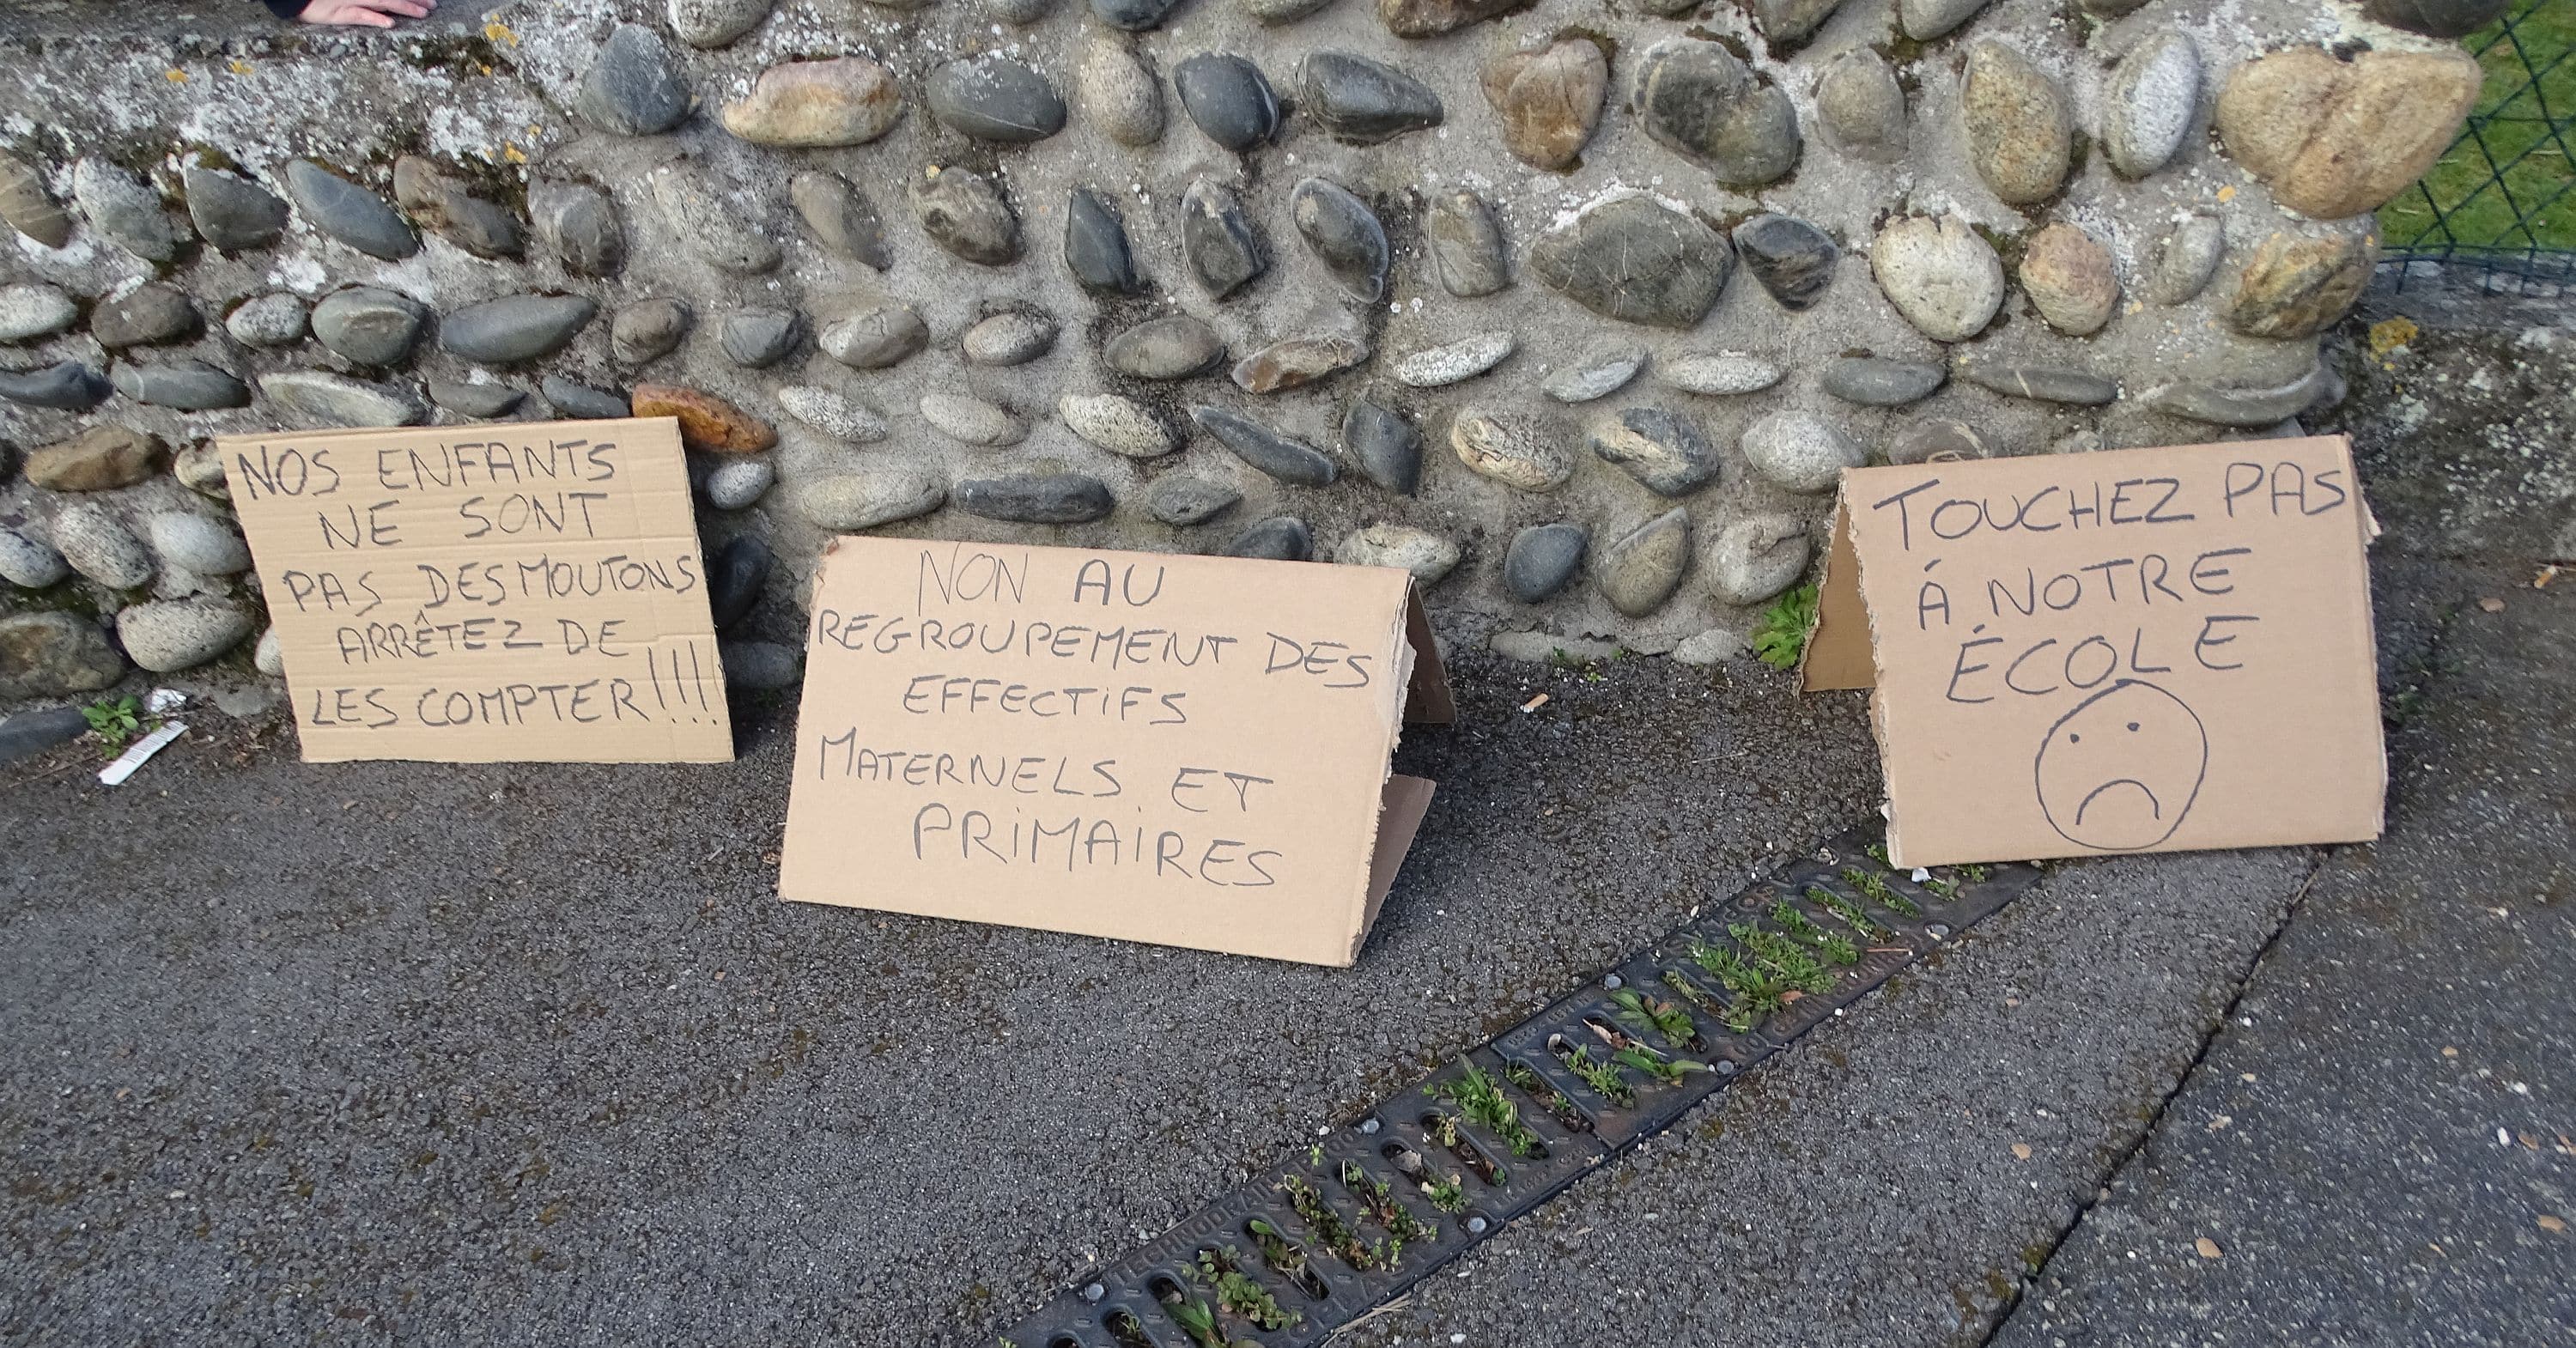 NOS ENFANTS
NE SONT
PAS DES MOUTONS
ARRÊTEZ DE
LES COMPTER!!!
NON AU
REGROUPEMENT DES
EFFECTIFS
MATERNELS ET
PRiMAiRES
TOUCHEZ PAS
Á NOTRE
ÉCOLE
TECHNODRAIN